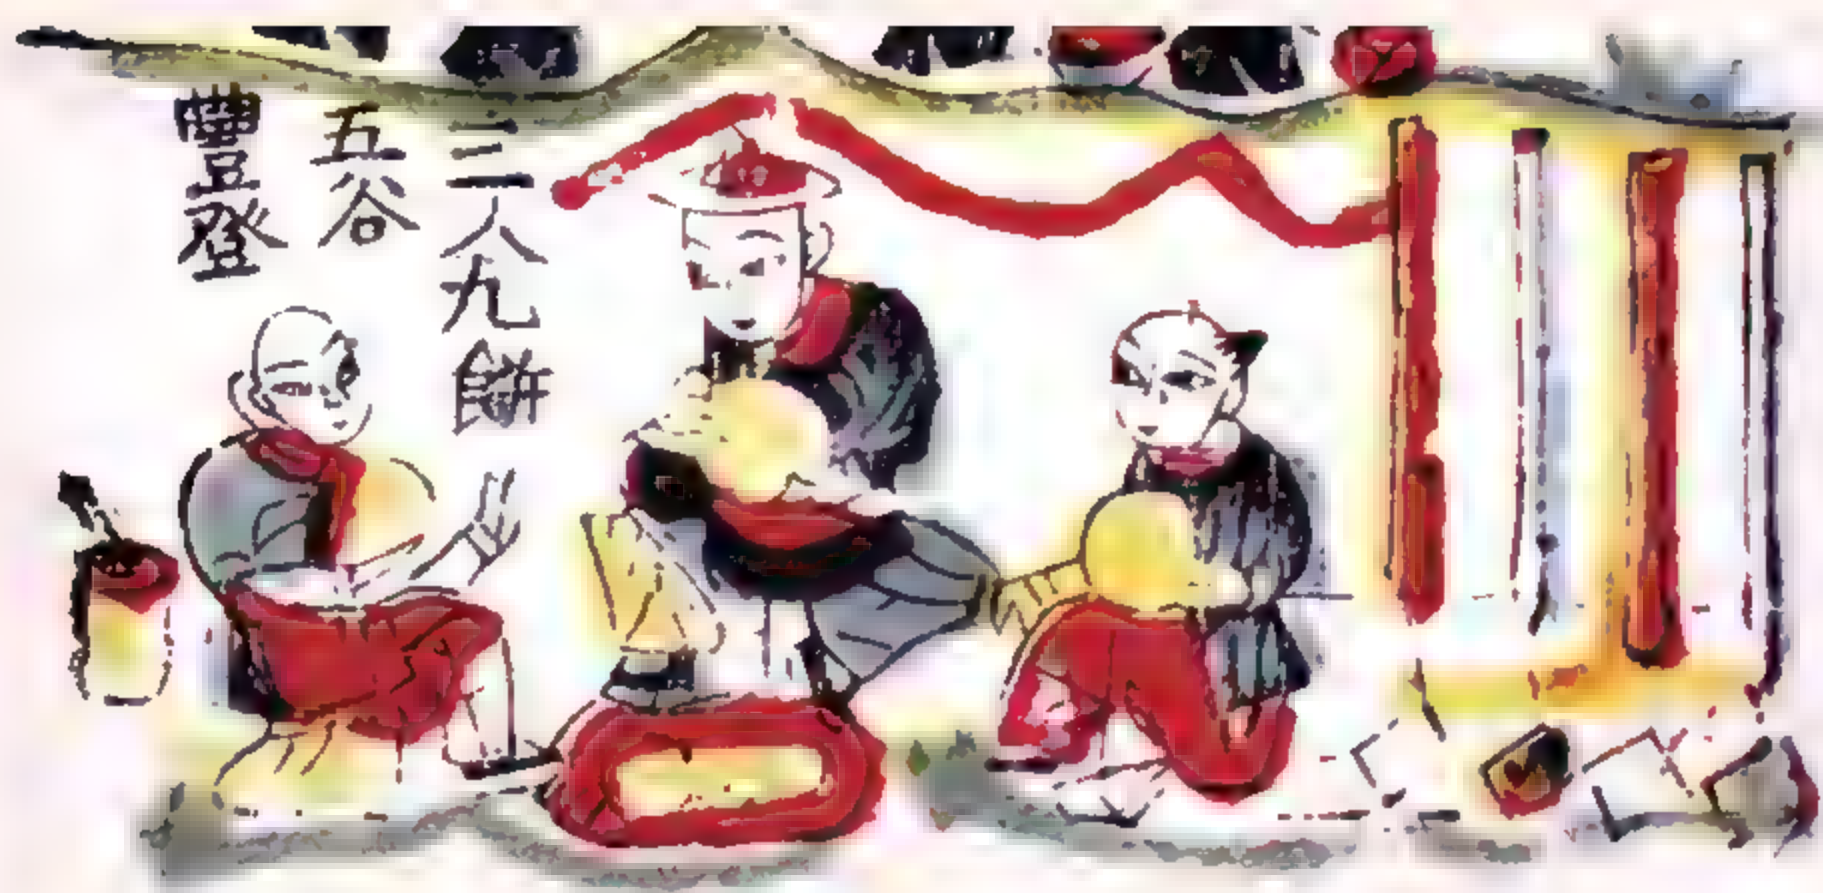 三人九餅
五谷
豐登